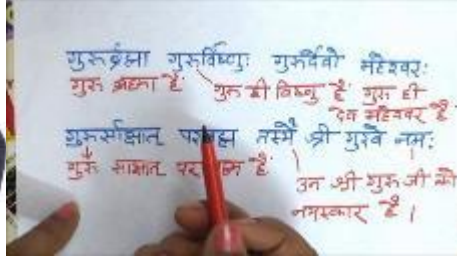 गुरुर्ब्रह्मा गुरुर्विष्णुः गुरुर्देवो महेश्वरः
गुरु ब्रह्मा है गुरु ही विष्णु है गुरु ही
देव महेश्वर है
गुरुर्साक्षात् परब्रह्म तस्मै श्री गुरवे नमः
गुरु साक्षात पर है
उन श्री गुरु जी को
नमस्कार है।